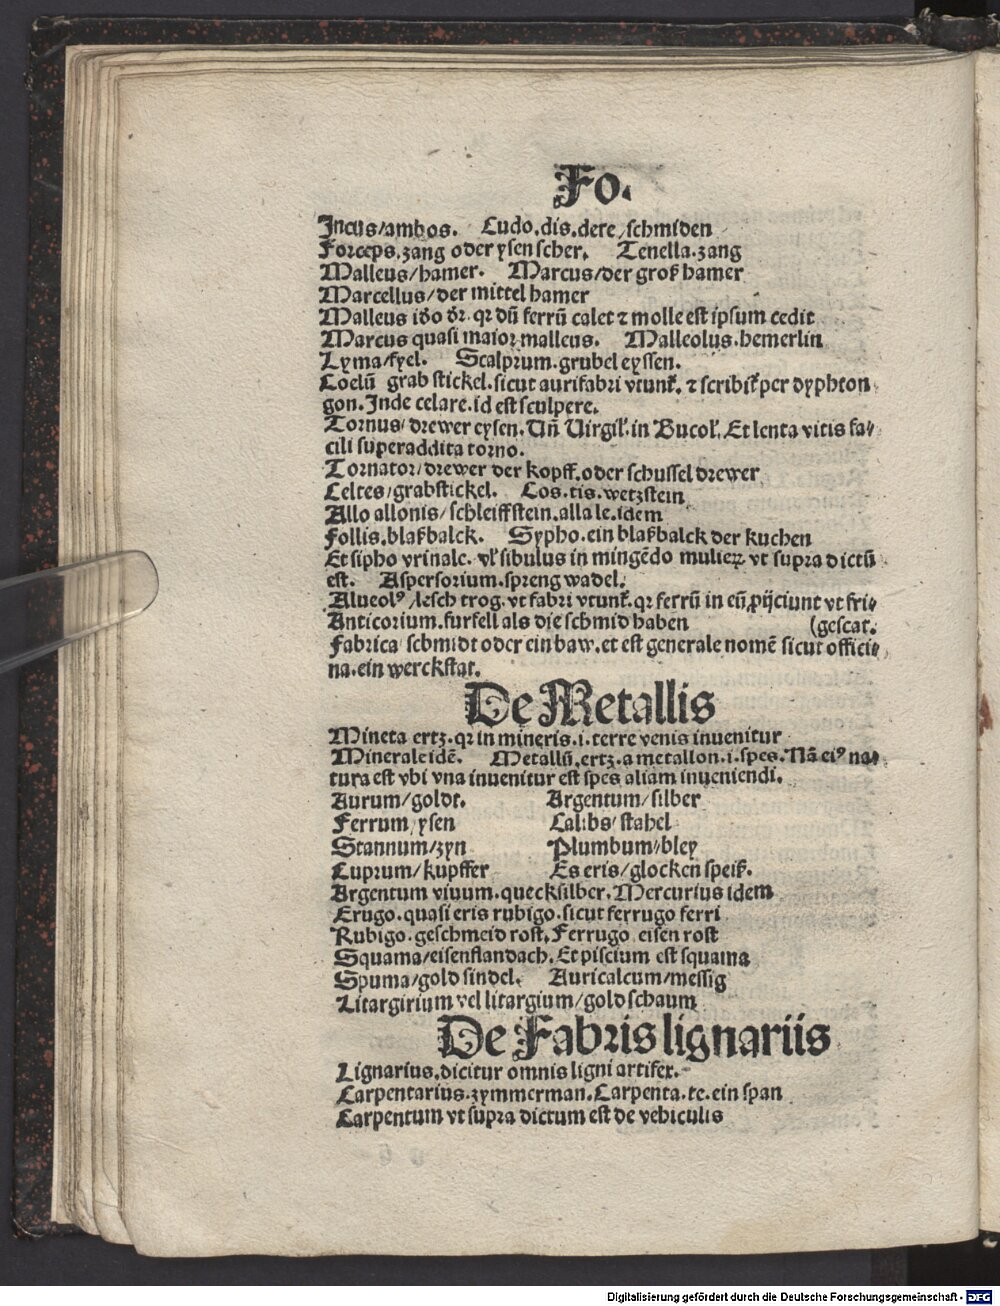 Fo.
Incus/ambos. Cudo.dis.dere/schmiden
Forceps.zang oder ysen scher. Tenella.zang
Malleus/hamer. Marcus/der groß hamer
Marcellus/der mittel hamer
Malleus iđo đr. qꝛ dū ferrū calet ⁊ molle est ipsum cedit
Marcus quasi maior malleus. Malleolus.hemerlin
Lyma/fyel. Scalprum.grubel eyssen.
Coelū grab stickel.sicut aurifabri vtunť. ⁊ scribiť per dyphton
gon.Inde celare.id est sculpere.
Tornus/drewer eysen.Uñ Uirgiľ.in Bucoľ.Et lenta vitis fa/
cili superaddita torno.
Tornator/drewer der kopff.oder schussel drewer
Celtes/grabstickel. Cos.tis.wetzstein
Allo allonis/schleiffstein.alla le.idem
Follis.blaßbalck. Sypho.ein blaßbalck der kuchen
Et sipho vrinale. vľ sibulus in mingēdo mulieꝝ vt supra dictū
est. Aspersorium.spreng wadel.
Alueolꝰ/lesch trog.vt fabri vtunť.qꝛ ferrū in eū ꝓijciunt vt fri/
Anticorium.furfell als die schmid haben (gescat.
Fabrica schmidt oder ein baw.et est generale nomē sicut offici/
na.ein werckstat.
De Metallis
Mineta ertz.qꝛ in mineris.i.terre venis inuenitur
Minerale idē. Metallū.ertz.a metallon.i.spes.Nā eiꝰ na/
tura est vbi vna inuenitur est spes aliam inueniendi.
Aurum/goldt. Argentum/silber
Ferrum/ysen Calibs/stahel
Stannum/zyn Plumbum/bley
Cuprum/kupffer Es eris/glocken speiß.
Argentum viuum.quecksilber.Mercurius idem
Erugo.quasi eris rubigo.sicut ferrugo ferri
Rubigo.geschmeid rost.Ferrugo eisen rost
Squama/eisenflandach.Et piscium est squama
Spuma/gold sindel. Auricalcum/messig
Litargirium vel litargium/gold schaum
De Fabris lignariis
Lignarius.dicitur omnis ligni artifex.
Carpentarius.zymmerman.Carpenta.te.ein span
Carpentum vt supra dictum est de vehiculis
Digitalisierung gefördert durch die Deutsche Forschungsgemeinschaft - DFG